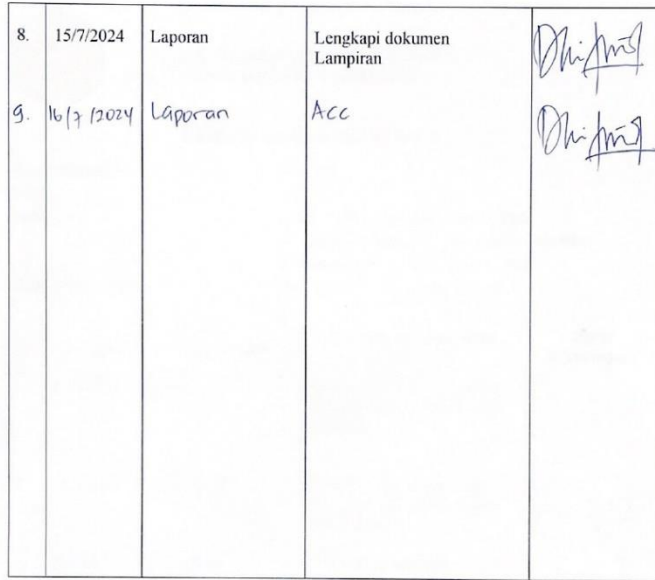 8. 15/7/2024 Laporan Lengkapi dokumen
Lampiran
9. 16/7/2024 Laporan ACC